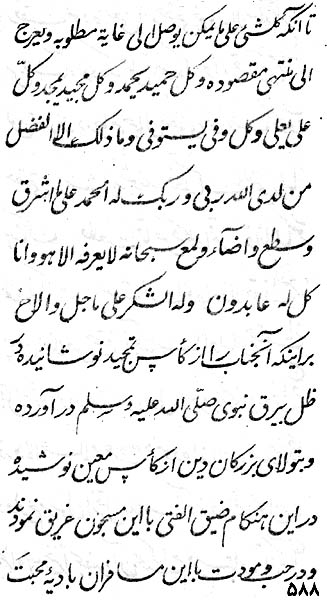 تا آنکه کلشئ علی ما یمکن یوصل الی غایة مطلوبه و یعرج
الی منتهی مقصوده و کل حمید یحمد و کل مجید یمجد و کل
علی یعلی و کل وفی یستوفی و ما ذلک الا الفضل
من لدی الله ربی و ربک له الحمد علی ما اشرق
و سطع و اضآء و لمع سبحانه لا یعرفه الا هو و انا
کل له عابدون و له الشکر علی ما جل و الاح
براینکه آنجناب را از کأس تمجید نوشانیده و در
ظل بیرق نبوی صلی الله علیه و سلم در آورده
و بتولای بزرکان دین از کأس معین نوشیده
در این هنکام ضیق الفتی با این مسجون غریق نمودند
و در حب و مودت با این مسافران بادیهٔ محبت
۵۸۸